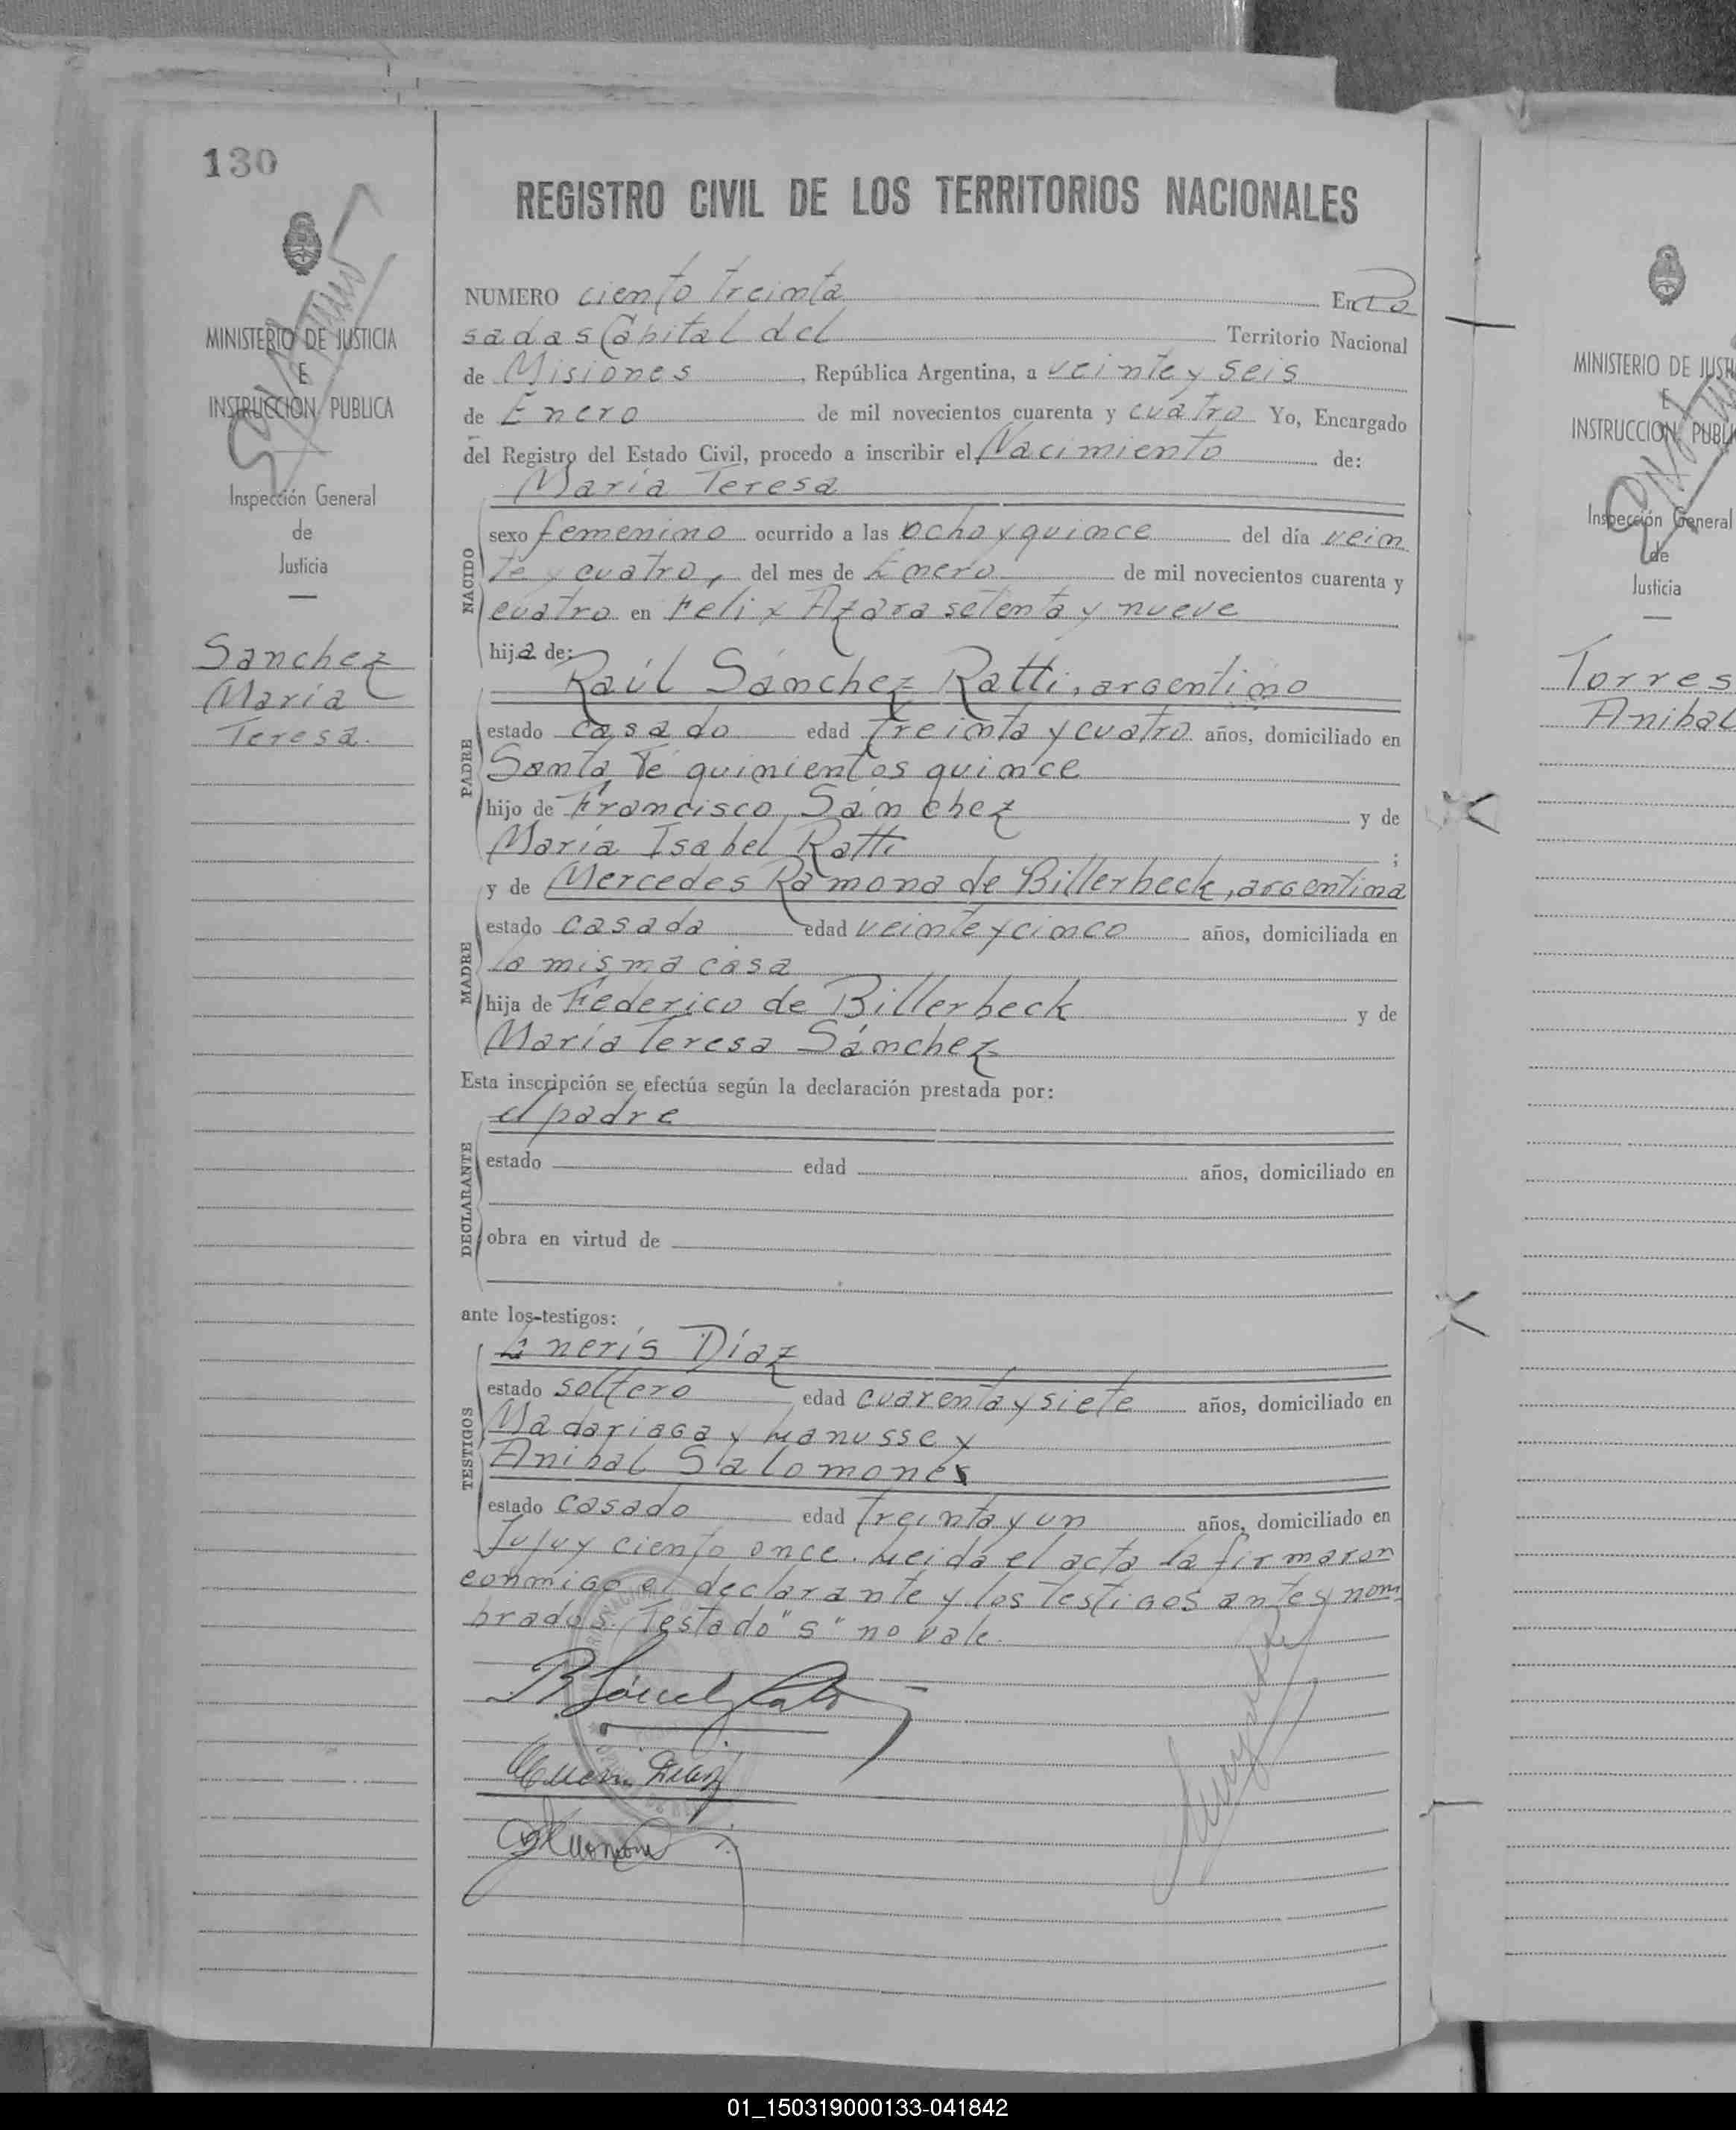 130
MINISTERIO DE JUSTICIA
E
INSTRUCCION PUBLICA
Inspección General
de
Justicia
Sanchez
María
Teresa.
REGISTRO CIVIL DE LOS TERRITORIOS NACIONALES
NUMERO ciento treinta En Po
sadas Capital del Territorio Nacional
de Misiones, República Argentina, a veinte y seis
de Enero de mil novecientos cuarenta y cuatro Yo, Encargado
del Registro del Estado Civil, procedo a inscribir el Nacimiento de:
María Teresa
NACIDO
sexo femenino ocurrido a las ocho y quince del día vein
te y cuatro, del mes de Enero de mil novecientos cuarenta y
cuatro en Felix Azara setenta y nueve
hija de:
PADRE
Raúl Sánchez Ratti, argentino
estado casado edad treinta y cuatro años, domiciliado en
Santa Fé quinientos quince
hijo de Francisco Sánchez y de
María Isabel Ratti ;
MADRE
y de Mercedes Ramona de Billerbeck, argentina
estado casada edad veinte y cinco años, domiciliada en
la misma casa
hija de Federico de Billerbeck y de
María Teresa Sánchez
Esta inscripción se efectúa según la declaración prestada por:
DECLARANTE
el padre
estado edad años, domiciliado en
obra en virtud de
ante los testigos:
TESTIGOS
Eneris Díaz
estado soltero edad cuarenta y siete años, domiciliado en
Madariaga y Lanusse y
Anibal Salomones
estado casado edad treinta y un años, domiciliado en
Jujuy ciento once. Leida el acta la firmaron
conmigo el declarante y los testigos antes nom
brados. Testado "s" no vale.
MINISTERIO DE JUSTI
E
INSTRUCCION PUBLI
Inspección General
de
Justicia
Torres
Anibal
01_150319000133-041842